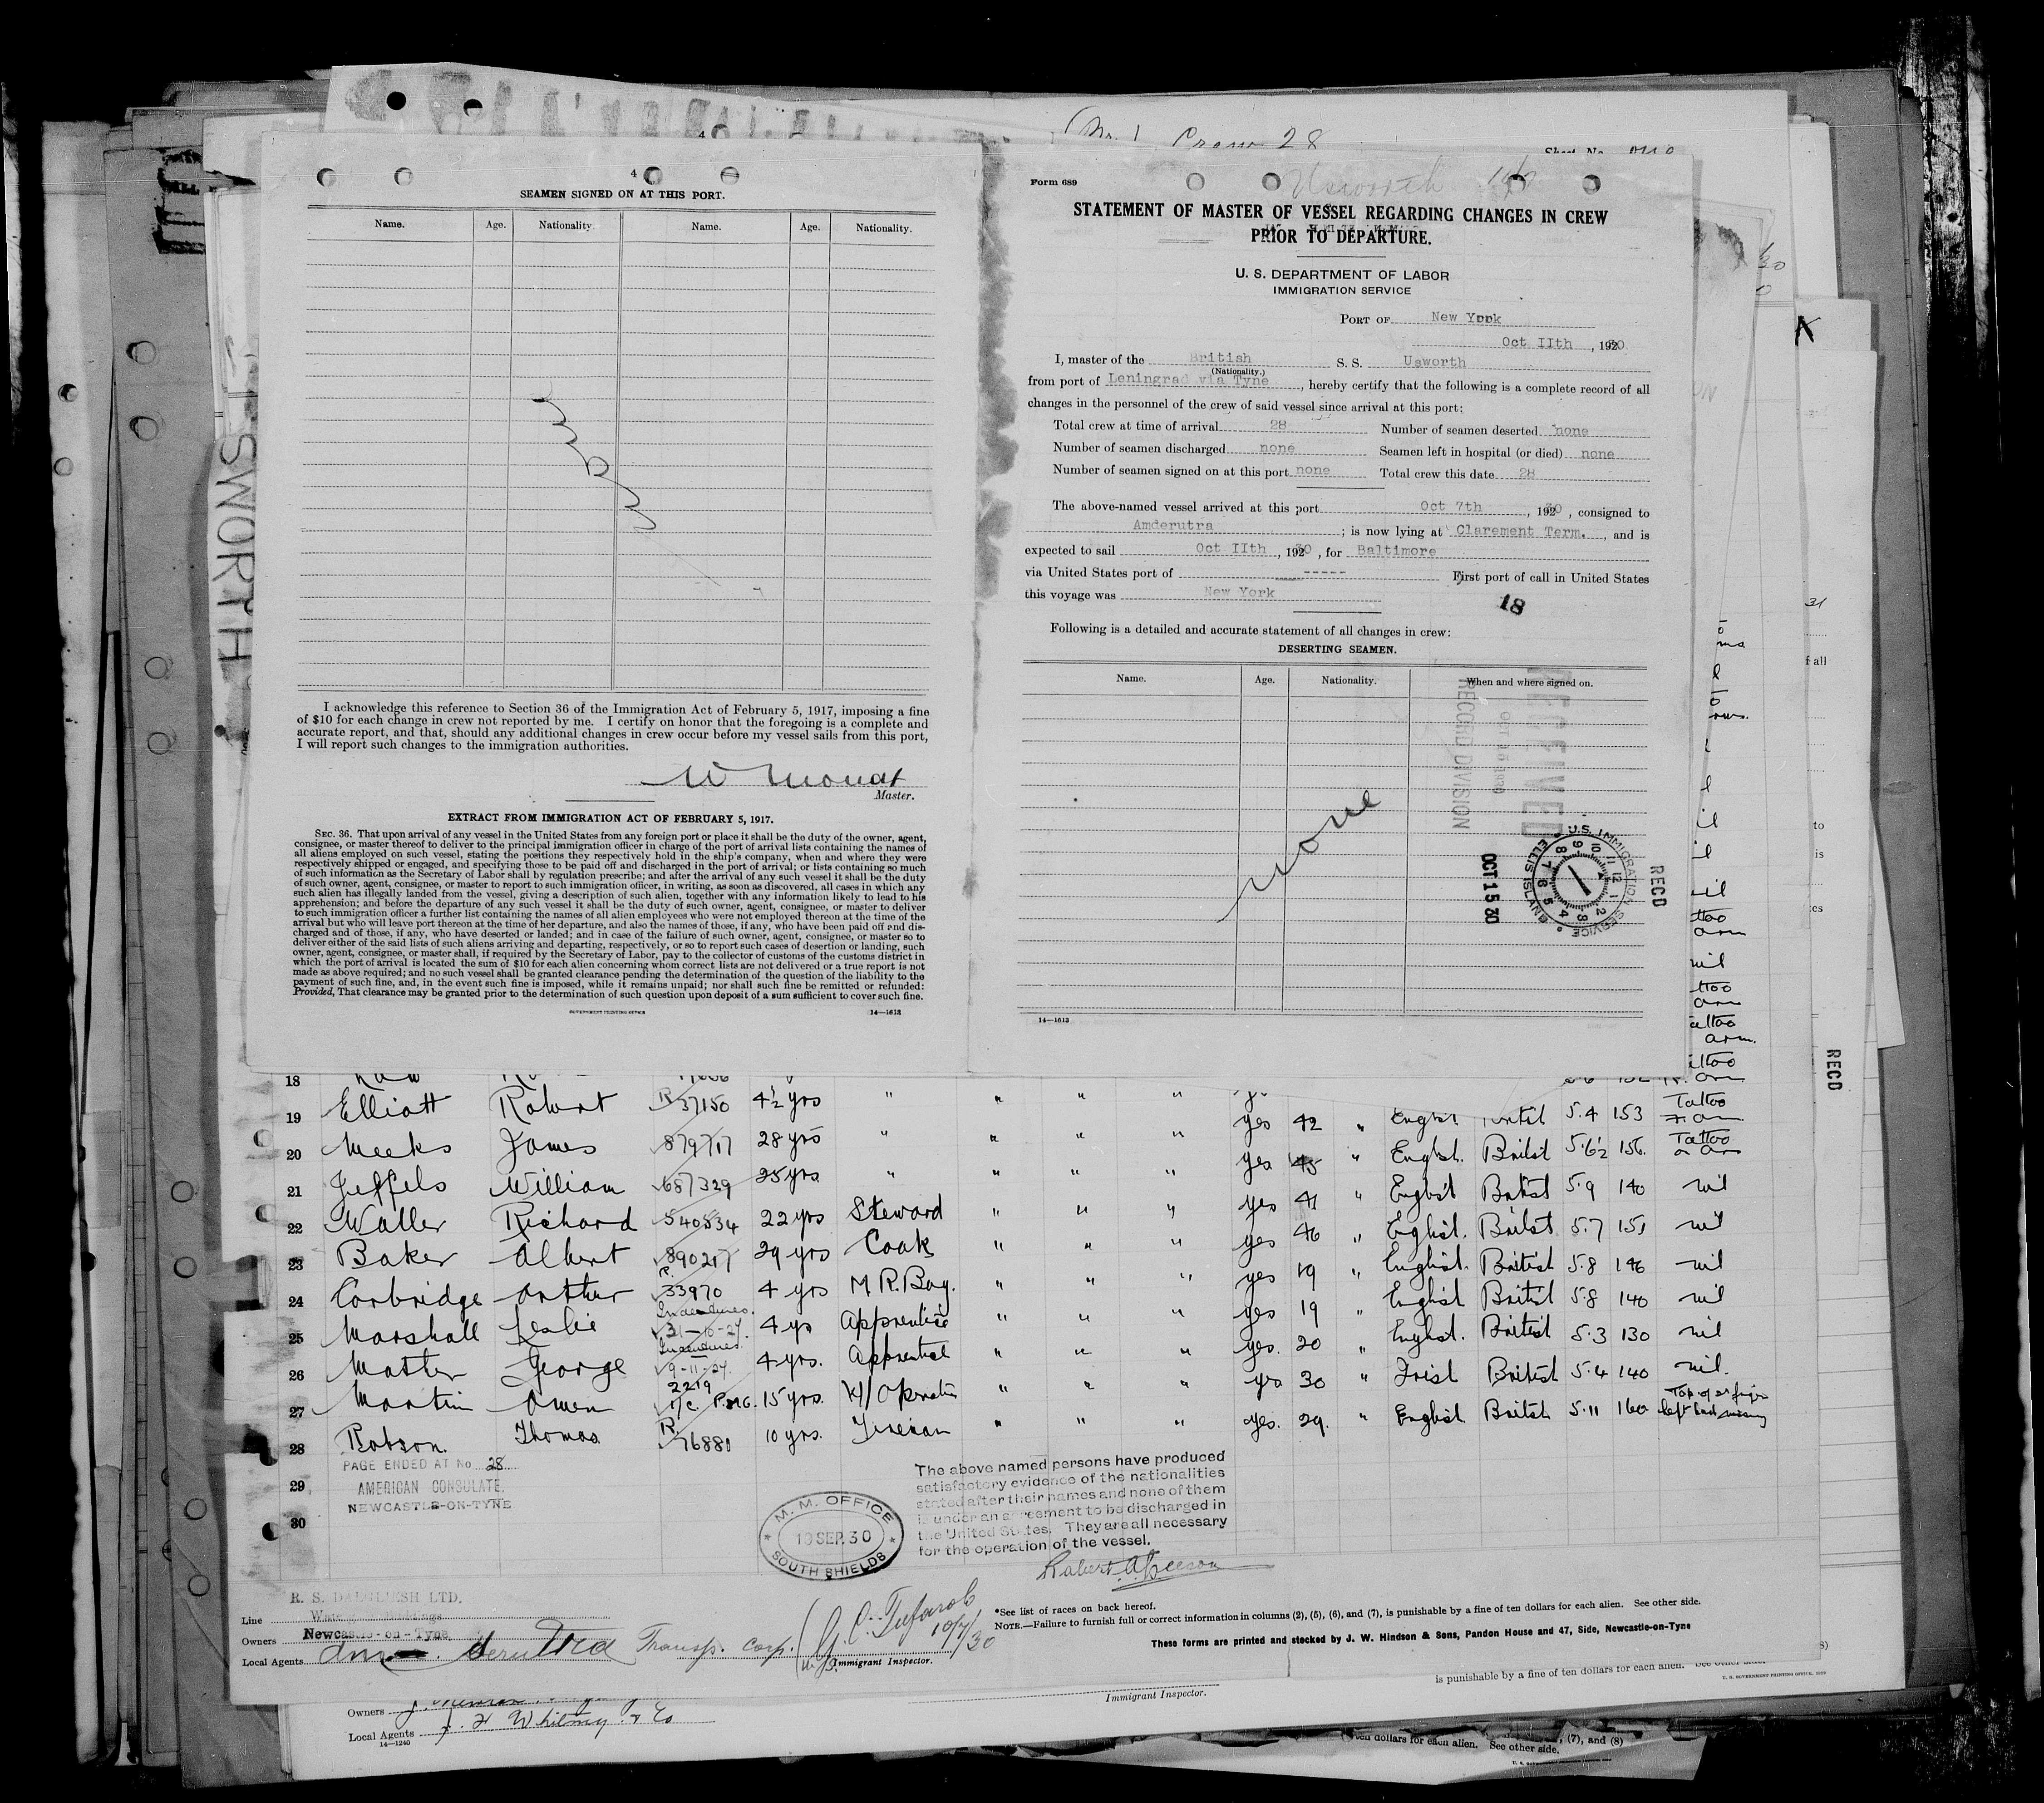 (No. 1 Crew 28
Sheet No.
4
SEAMEN SIGNED ON AT THIS PORT.
Name. Age. Nationality. Name. Age. Nationality.
none
I acknowledge this reference to Section 36 of the Immigration Act of February 5, 1917, imposing a fine
of $10 for each change in crew not reported by me. I certify on honor that the foregoing is a complete and
accurate report, and that, should any additional changes in crew occur before my vessel sails from this port,
I will report such changes to the immigration authorities.
W Mouat
Master.
EXTRACT FROM IMMIGRATION ACT OF FEBRUARY 5, 1917.
SEC. 36. That upon arrival of any vessel in the United States from any foreign port or place it shall be the duty of the owner, agent,
consignee, or master thereof to deliver to the principal immigration officer in charge of the port of arrival lists containing the names of
all aliens employed on such vessel, stating the positions they respectively hold in the ship's company, when and where they were
respectively shipped or engaged, and specifying those to be paid off and discharged in the port of arrival; or lists containing so much
of such information as the Secretary of Labor shall by regulation prescribe; and after the arrival of any such vessel it shall be the duty
of such owner, agent, consignee, or master to report to such immigration officer, in writing, as soon as discovered, all cases in which any
such alien has illegally landed from the vessel, giving a description of such alien, together with any information likely to lead to his
apprehension; and before the departure of any such vessel it shall be the duty of such owner, agent, consignee, or master to deliver
to such immigration officer a further list containing the names of all alien employees who were not employed thereon at the time of the
arrival but who will leave port thereon at the time of her departure, and also the names of those, if any, who have been paid off and dis-
charged and of those, if any, who have deserted or landed; and in case of the failure of such owner, agent, consignee, or master so to
deliver either of the said lists of such aliens arriving and departing, respectively, or so to report such cases of desertion or landing, such
owner, agent, consignee, or master shall, if required by the Secretary of Labor, pay to the collector of customs of the customs district in
which the port of arrival is located the sum of $10 for each alien concerning whom correct lists are not delivered or a true report is not
made as above required; and no such vessel shall be granted clearance pending the determination of the question of the liability to the
payment of such fine, and, in the event such fine is imposed, while it remains unpaid; nor shall such fine be remitted or refunded:
Provided, That clearance may be granted prior to the determination of such question upon deposit of a sum sufficient to cover such fine.
GOVERNMENT PRINTING OFFICE 14—1613
Form 689 Usworth
STATEMENT OF MASTER OF VESSEL REGARDING CHANGES IN CREW
PRIOR TO DEPARTURE.
U. S. DEPARTMENT OF LABOR
IMMIGRATION SERVICE
PORT OF New York
Oct IIth, 1930
I, master of the British S. S. Usworth
(Nationality.)
from port of Leningrad via Tyne, hereby certify that the following is a complete record of all
changes in the personnel of the crew of said vessel since arrival at this port:
Total crew at time of arrival 28 Number of seamen deserted none
Number of seamen discharged none Seamen left in hospital (or died) none
Number of seamen signed on at this port none Total crew this date 28
The above-named vessel arrived at this port Oct 7th, 1930, consigned to
Amderutra; is now lying at Clarement Term., and is
expected to sail Oct IIth, 1930, for Baltimore
via United States port of ----- First port of call in United States
this voyage was New York
18
Following is a detailed and accurate statement of all changes in crew:
DESERTING SEAMEN.
Name. Age. Nationality. When and where signed on.
none
RECEIVED
OCT 15 1930
RECORD DIVISION
RECD
U.S. IMMIGRATION SERVICE
ELLIS ISLAND
OCT 15 30
14—1613
SWORTH
RECD
18
19 Elliott Robert R 37150 4½ yrs " " " " yes
20 Meeks James 879717 28 yrs " " " " yes 42 " English 5.4 153 Tattoo
21 Jeffels William 687329 25 yrs " " " " yes 45 " English. British 5.6½ 156
22 Waller Richard 540534 22 yrs Steward " " " yes 41 " English British 5.9 140 nil
23 Baker Albert 890217 29 yrs Cook " " " yes 46 " English. British 5.7 151 nil
24 Corbridge Arthur R. 33970 4 yrs M.R. Boy. " " " yes 19 " English. British 5.8 146 nil
25 Marshall Leslie Indentures. 31-10-27. 4 yrs Apprentice " " " yes 19 " English British 5.8 140 nil
26 Matter George Indentures. 9-11-27. 4 yrs. Apprentice " " " yes. 20 " English. British 5.3 130 nil
27 Martin Owen 2219 1/c P.M.G. 15 yrs. W/Operator " " " yes 30 " Irish British 5.4 140 nil.
28 Robson. Thomas R. 76880 10 yrs. Fireman " " " yes. 29. " English. British 5.11 160 Top of finger left hand missing
29
30
PAGE ENDED AT No. 28
AMERICAN CONSULATE.
NEWCASTLE-ON-TYNE
M. M. OFFICE
19 SEP. 30
SOUTH SHIELDS
The above named persons have produced
satisfactory evidence of the nationalities
stated after their names and none of them
is under an agreement to be discharged in
the United States. They are all necessary
for the operation of the vessel.
R. S. DALGLIESH LTD.
Line
Owners Newcastle-on-Tyne
Local Agents Transp. Corp.
10/7/30
Immigrant Inspector.
*See list of races on back hereof.
NOTE.—Failure to furnish full or correct information in columns (2), (5), (6), and (7), is punishable by a fine of ten dollars for each alien. See other side.
These forms are printed and stocked by J. W. Hindson & Sons, Pandon House and 47, Side, Newcastle-on-Tyne
is punishable by a fine of ten dollars for each alien. See other side.
Owners
Immigrant Inspector.
Local Agents J. H. Whitney & Co
14—1240
ten dollars for each alien. See other side. , (7), and (8)